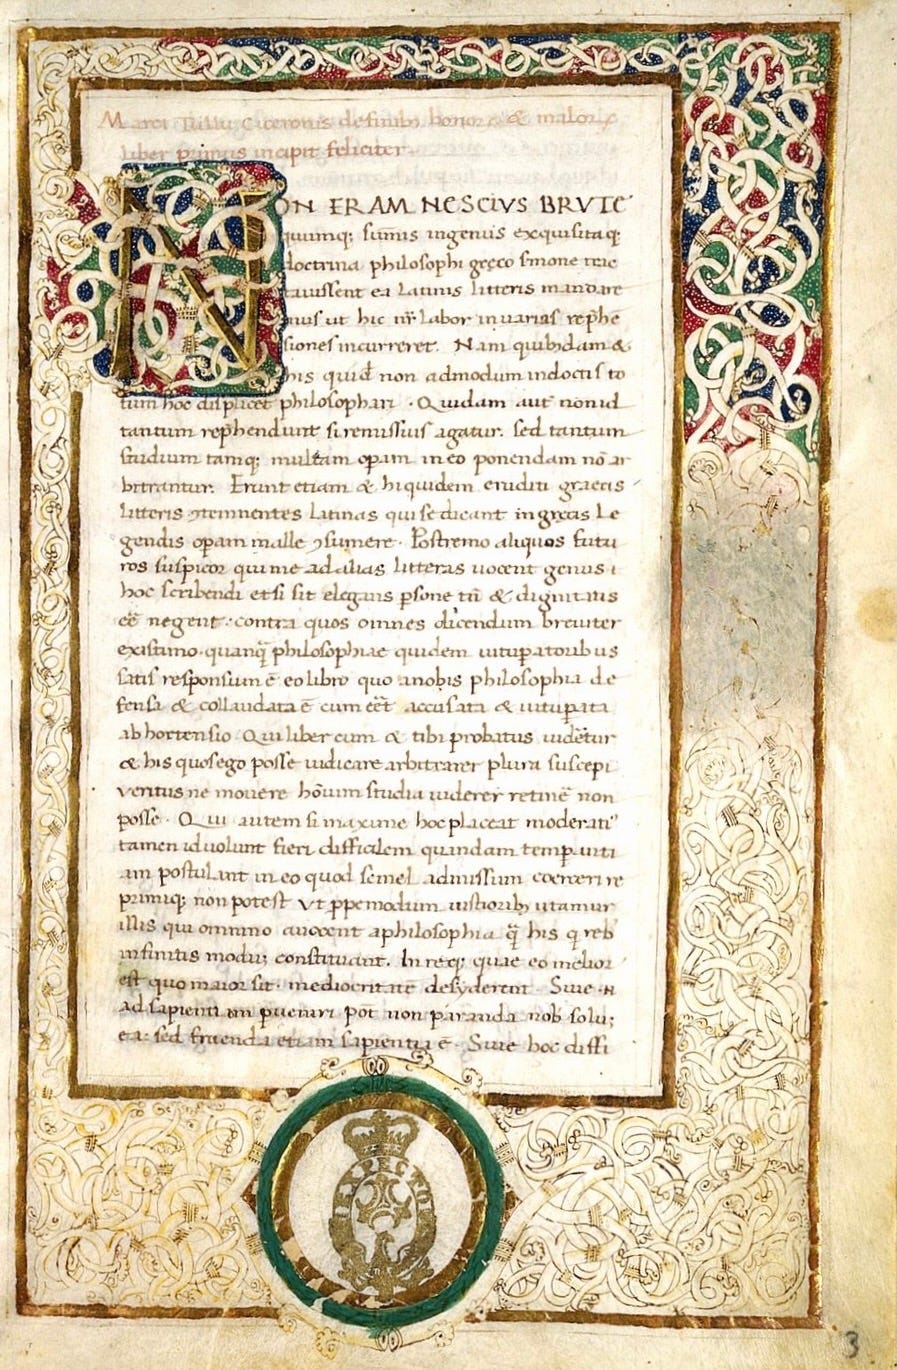 Marci Tullii Ciceronis de finibꝫ bonorꝫ & malorꝫ
liber primus incipit feliciter
NON ERAM NESCIVS BRVTE
quumqꝫ sūmis ingeniis exquisitaqꝫ
doctrina philosophi greco
tauissent ea latinis litteris mandare
mus ut hic nr̄ labor in uarias rep̄he
siones incurreret. Nam quibꝰdam &
his quid̄ non admodum indoctis to
tum hoc displicet philosophari. Quidam aut̄ non id
tantum rep̄hendunt si remissius agatur. sed tantum
studium tamqꝫ multam oꝑam in eo ponendam nō ar
bitrantur. Erunt etiam & hi quidem eruditi graecis
litteris ꝯtemnentes latinas qui se dicant in grecis le
gendis oꝑam malle ꝯsumere. Postremo aliquos futu
ros suspicor qui me ad alias litteras uocent genus
hoc scribendi etsi sit elegans ꝑsone tn̄ & dignitatis
eē negent. contra quos omnes dicendum breuiter
existimo. quanq̄ philosophiae quidem uituꝑatoribus
satis responsum ē eo libro quo a nobis philosophia de
fensa & collaudata ē cum eēt accusata & uituꝑata
ab hortensio Qui liber cum & tibi probatus uidēt̄ur
& his quos ego posse iudicare arbitrarer plura suscepi
ueritus ne mouere hōium studia uiderer retinē non
posse. Qui autem si maxime hoc placeat moderatiꝰ
tamen id uolunt fieri difficilem quandam temꝑanti
am postulant in eo quod semel admissum coerceri re
primiqꝫ non potest Vt ꝓpemodum iustioribꝫ utamur
illis qui omnino auocent a philosophia q̄ his q rebꝰ
infinitis modum constituant. In reqꝫ quae eo melior
est quo maior sit. mediocritatē desyderent. Siue
ad sapientiam ꝑueniri pōt non paranda nob solum
ea. sed fruenda etiam sapientia ē. Siue hoc diffi
3